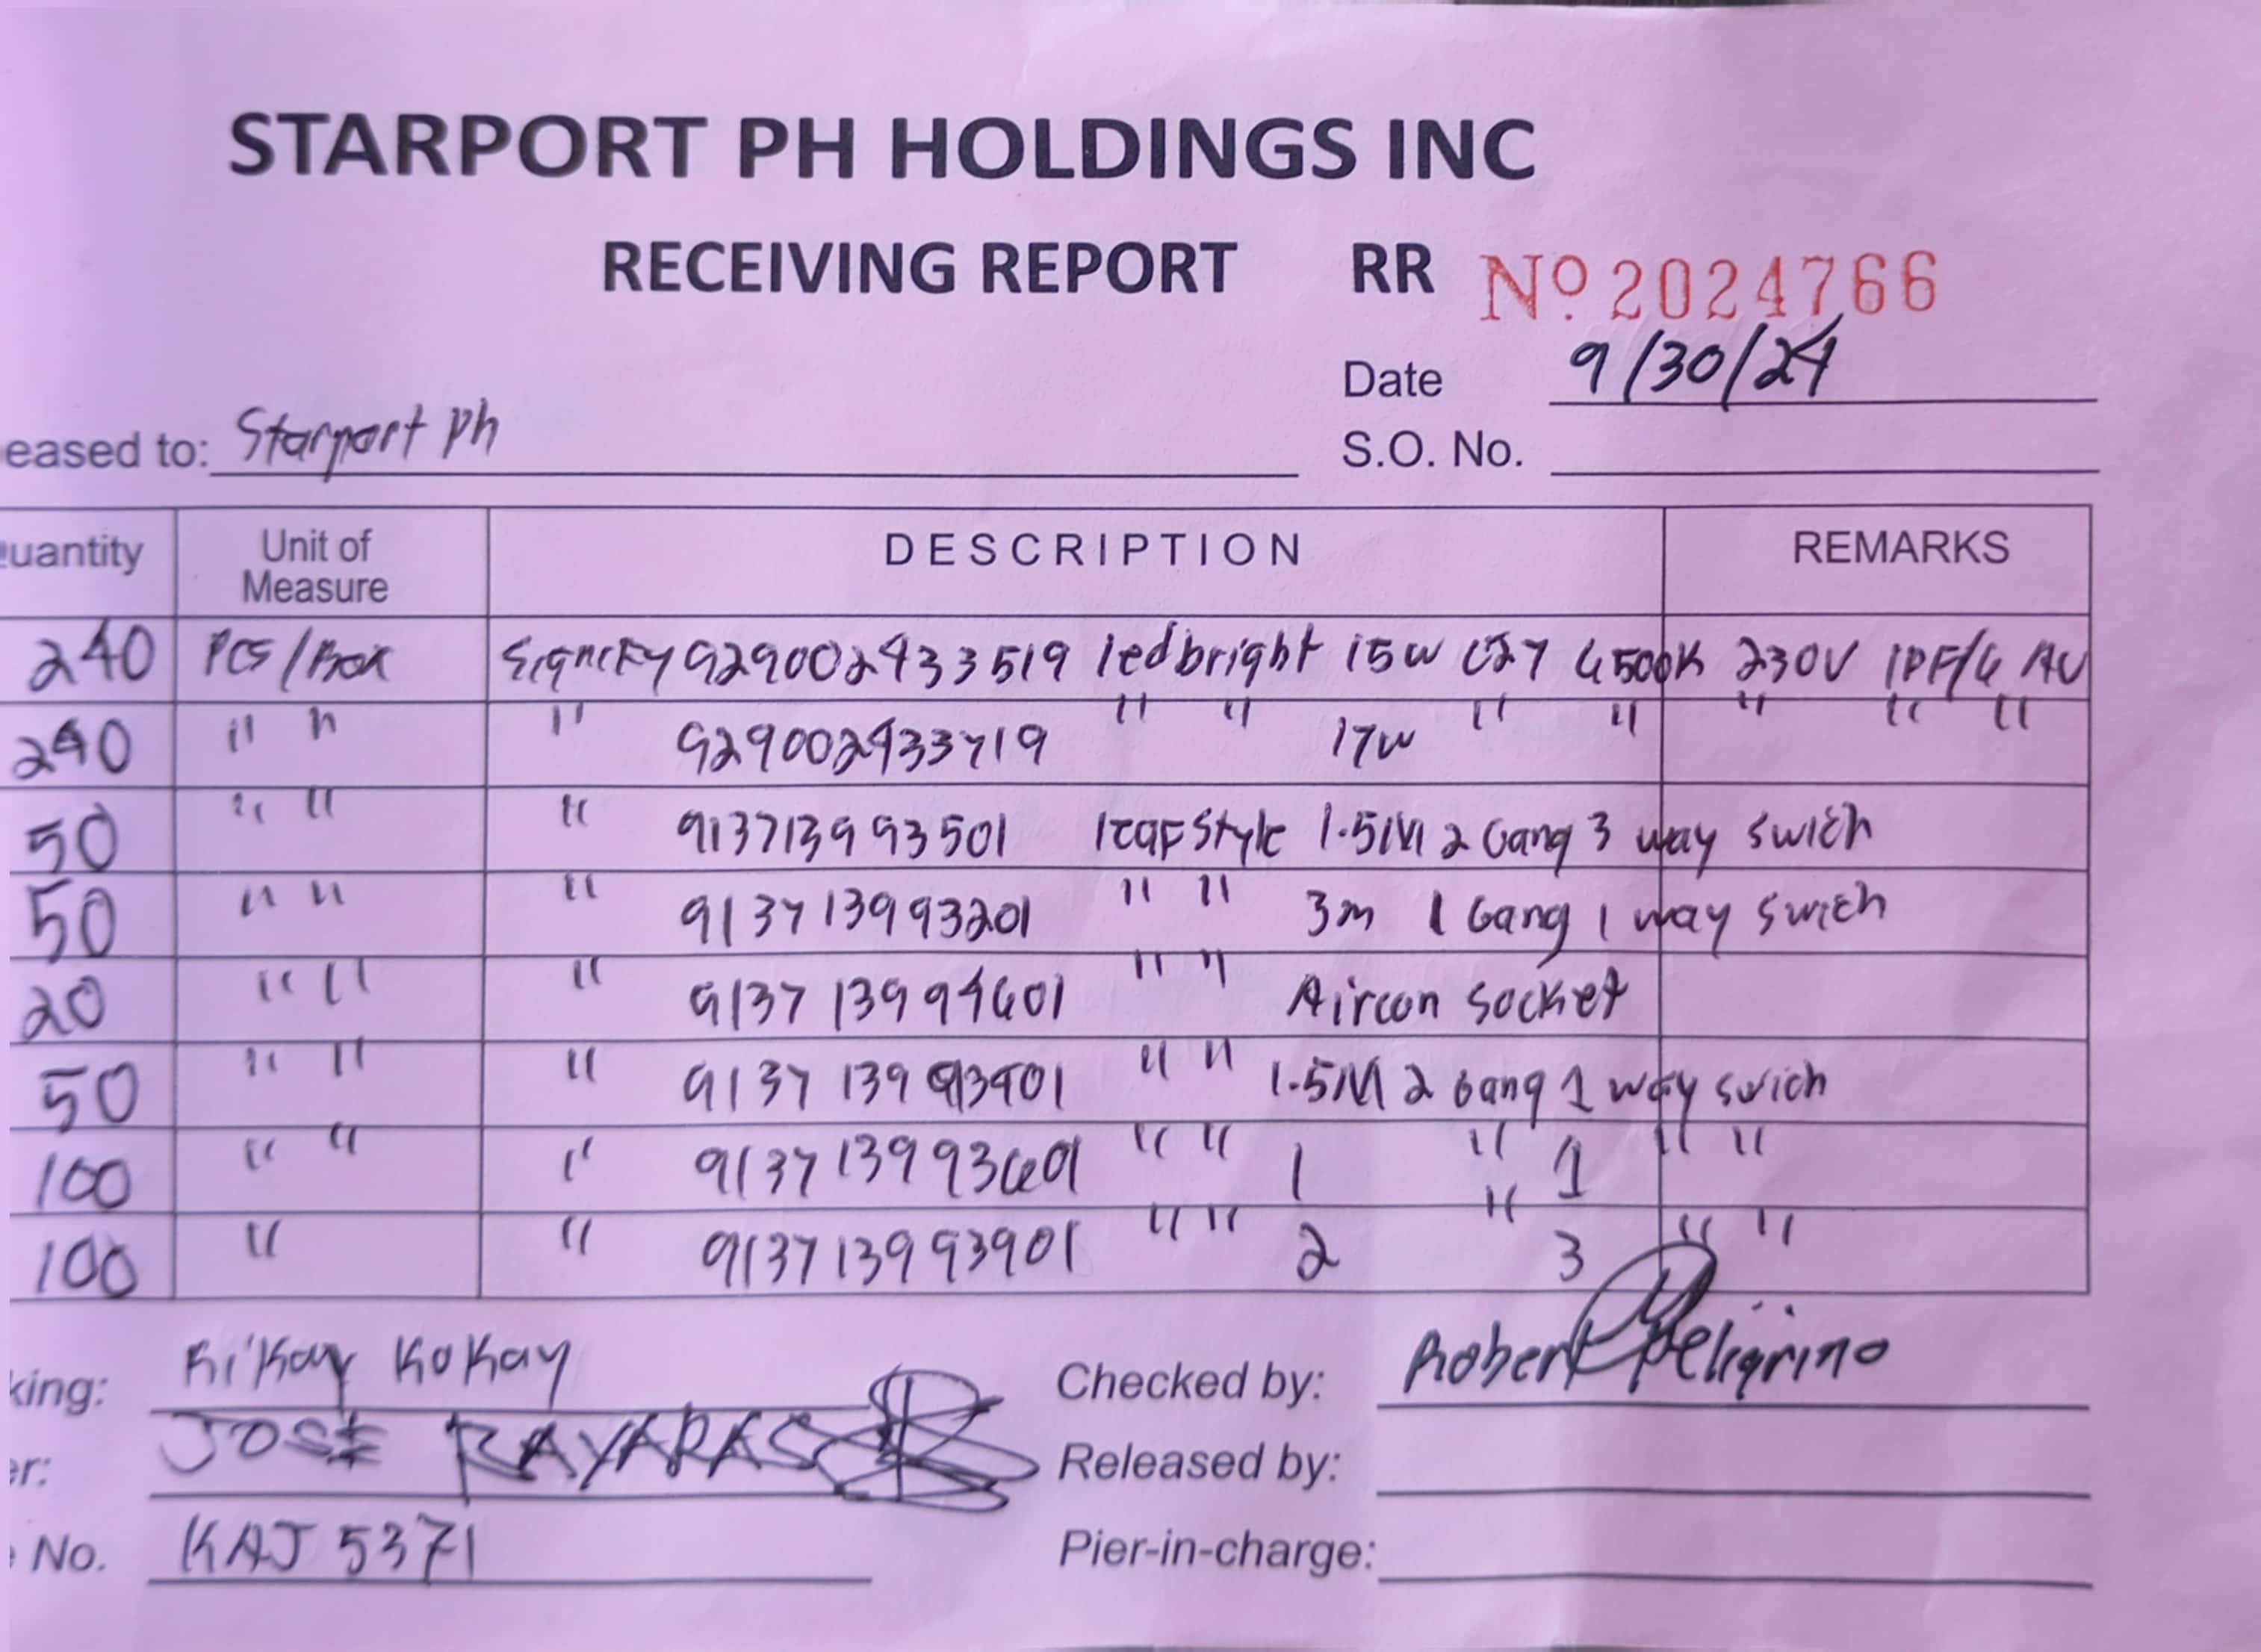 STARPORT PH HOLDINGS INC
RECEIVING REPORT RR Nº 2024766
Date 9/30/24
eased to: Starport Ph
S.O. No.
uantity Unit of Measure DESCRIPTION REMARKS
240 PCS/Box Signify 929002433519 ledbright 15W E27 6500K 230V 1PF/6 AU
240 " " " 929002433719 " " 17W " " " " "
50 " " " 913713993501 leafstyle 1.5M 2 Gang 3 way swich
50 " " " 913713993201 " " 3m 1 Gang 1 way swich
20 " " " 913713994601 " " Aircon Socket
50 " " " 913713993401 " " 1.5M 2 Gang 1 way swich
100 " " " 913713993601 " " 1 " 1 " "
100 " " 913713993901 " " 2 " 3 " "
king: Ri'Kay KoKay
Checked by: Robert Peligrino
er: JOSE RAYARAS
Released by:
No. KAJ 5371
Pier-in-charge: